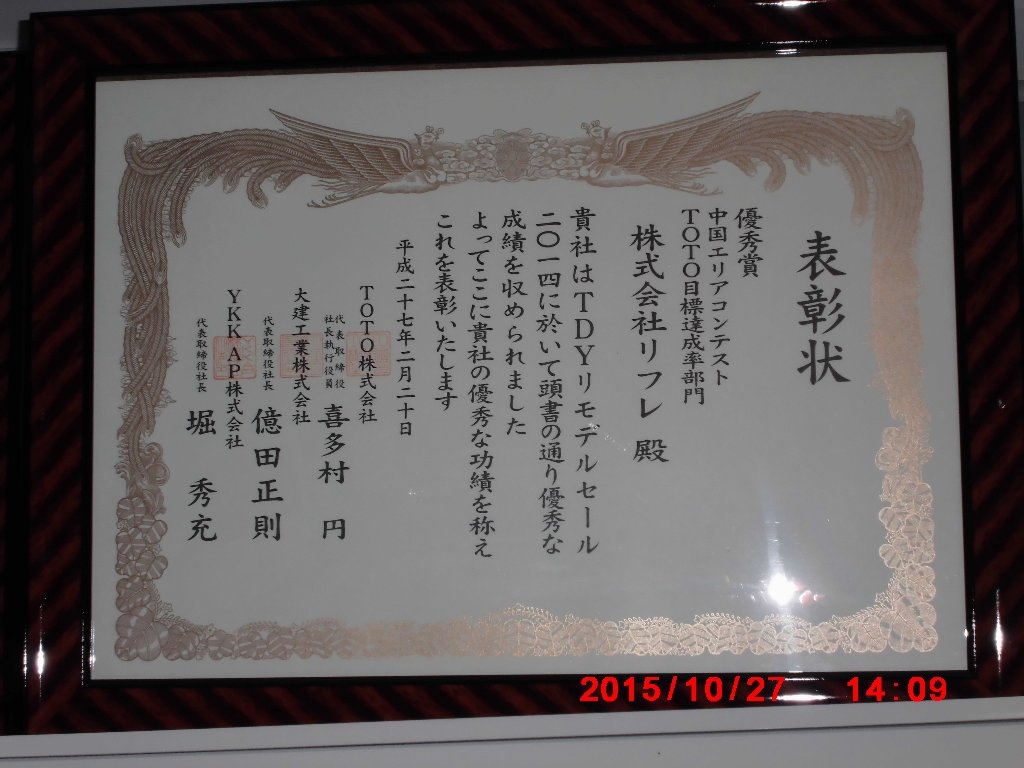 表彰状
優秀賞
中国エリアコンテスト
TOTO目標達成率部門
株式会社リフレ 殿
貴社はTDYリモデルセール
二〇一四に於いて頭書の通り優秀な
成績を収められました
よってここに貴社の優秀な功績を称え
これを表彰いたします
平成二十七年二月二十日
TOTO株式会社
代表取締役
社長執行役員 喜多村 円
大建工業株式会社
代表取締役社長 億田正則
YKK AP株式会社
代表取締役社長 堀 秀充
2015/10/27 14:09